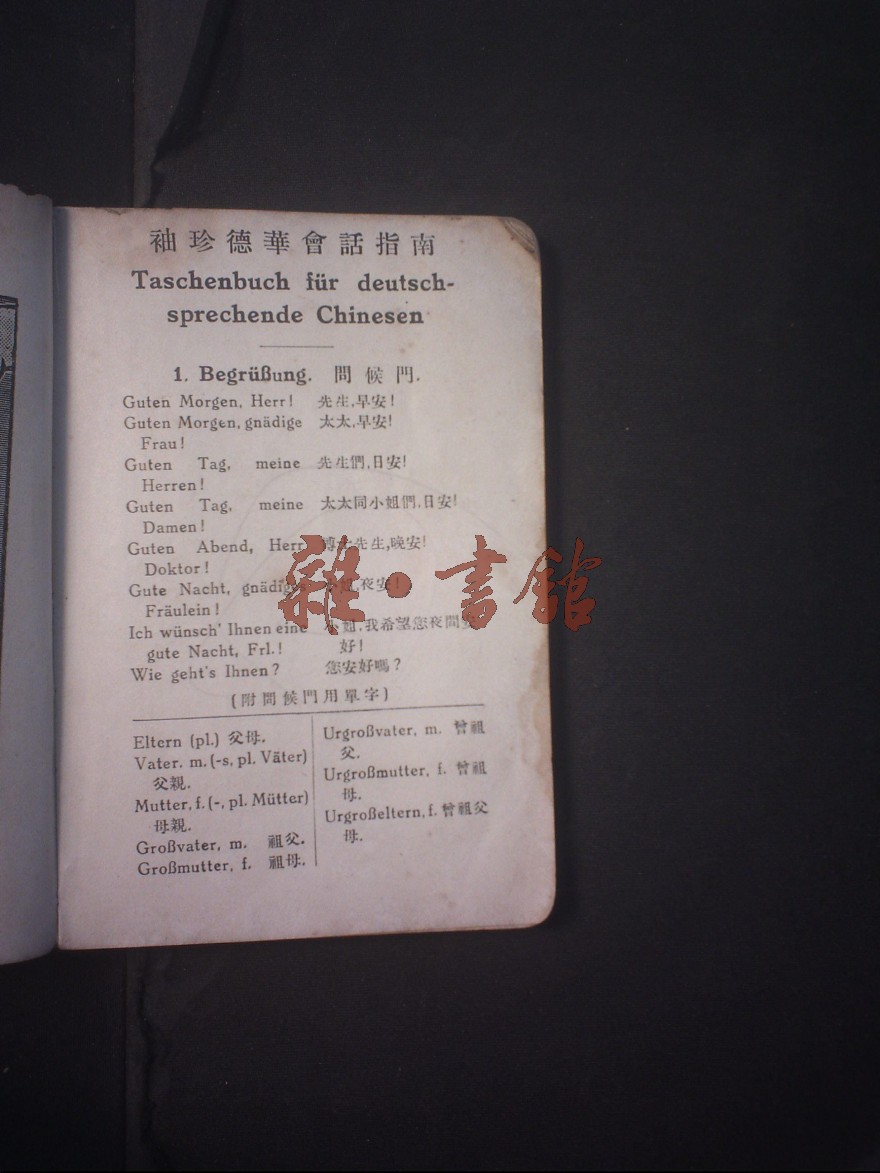 袖珍德華會話指南
Taschenbuch für deutsch-
sprechende Chinesen
1. Begrüßung. 問候門.
Guten Morgen, Herr! 先生,早安!
Guten Morgen, gnädige 太太,早安!
Frau!
Guten Tag, meine 先生們,日安!
Herren!
Guten Tag, meine 太太同小姐們,日安!
Damen!
Guten Abend, Herr 博士先生,晚安!
Doktor!
Gute Nacht, gnädiges 小姐,夜安!
Fräulein!
Ich wünsch' Ihnen eine 小姐,我希望您夜間安
gute Nacht, Frl.! 好!
Wie geht's Ihnen? 您安好嗎?
(附問候門用單字)
Eltern (pl.) 父母.
Vater. m. (-s, pl. Väter)
父親.
Mutter, f. (-, pl. Mütter)
母親.
Großvater, m. 祖父.
Großmutter, f. 祖母.
Urgroßvater, m. 曾祖
父.
Urgroßmutter, f. 曾祖
母.
Urgroßeltern, f. 曾祖父
母.
雜·書館